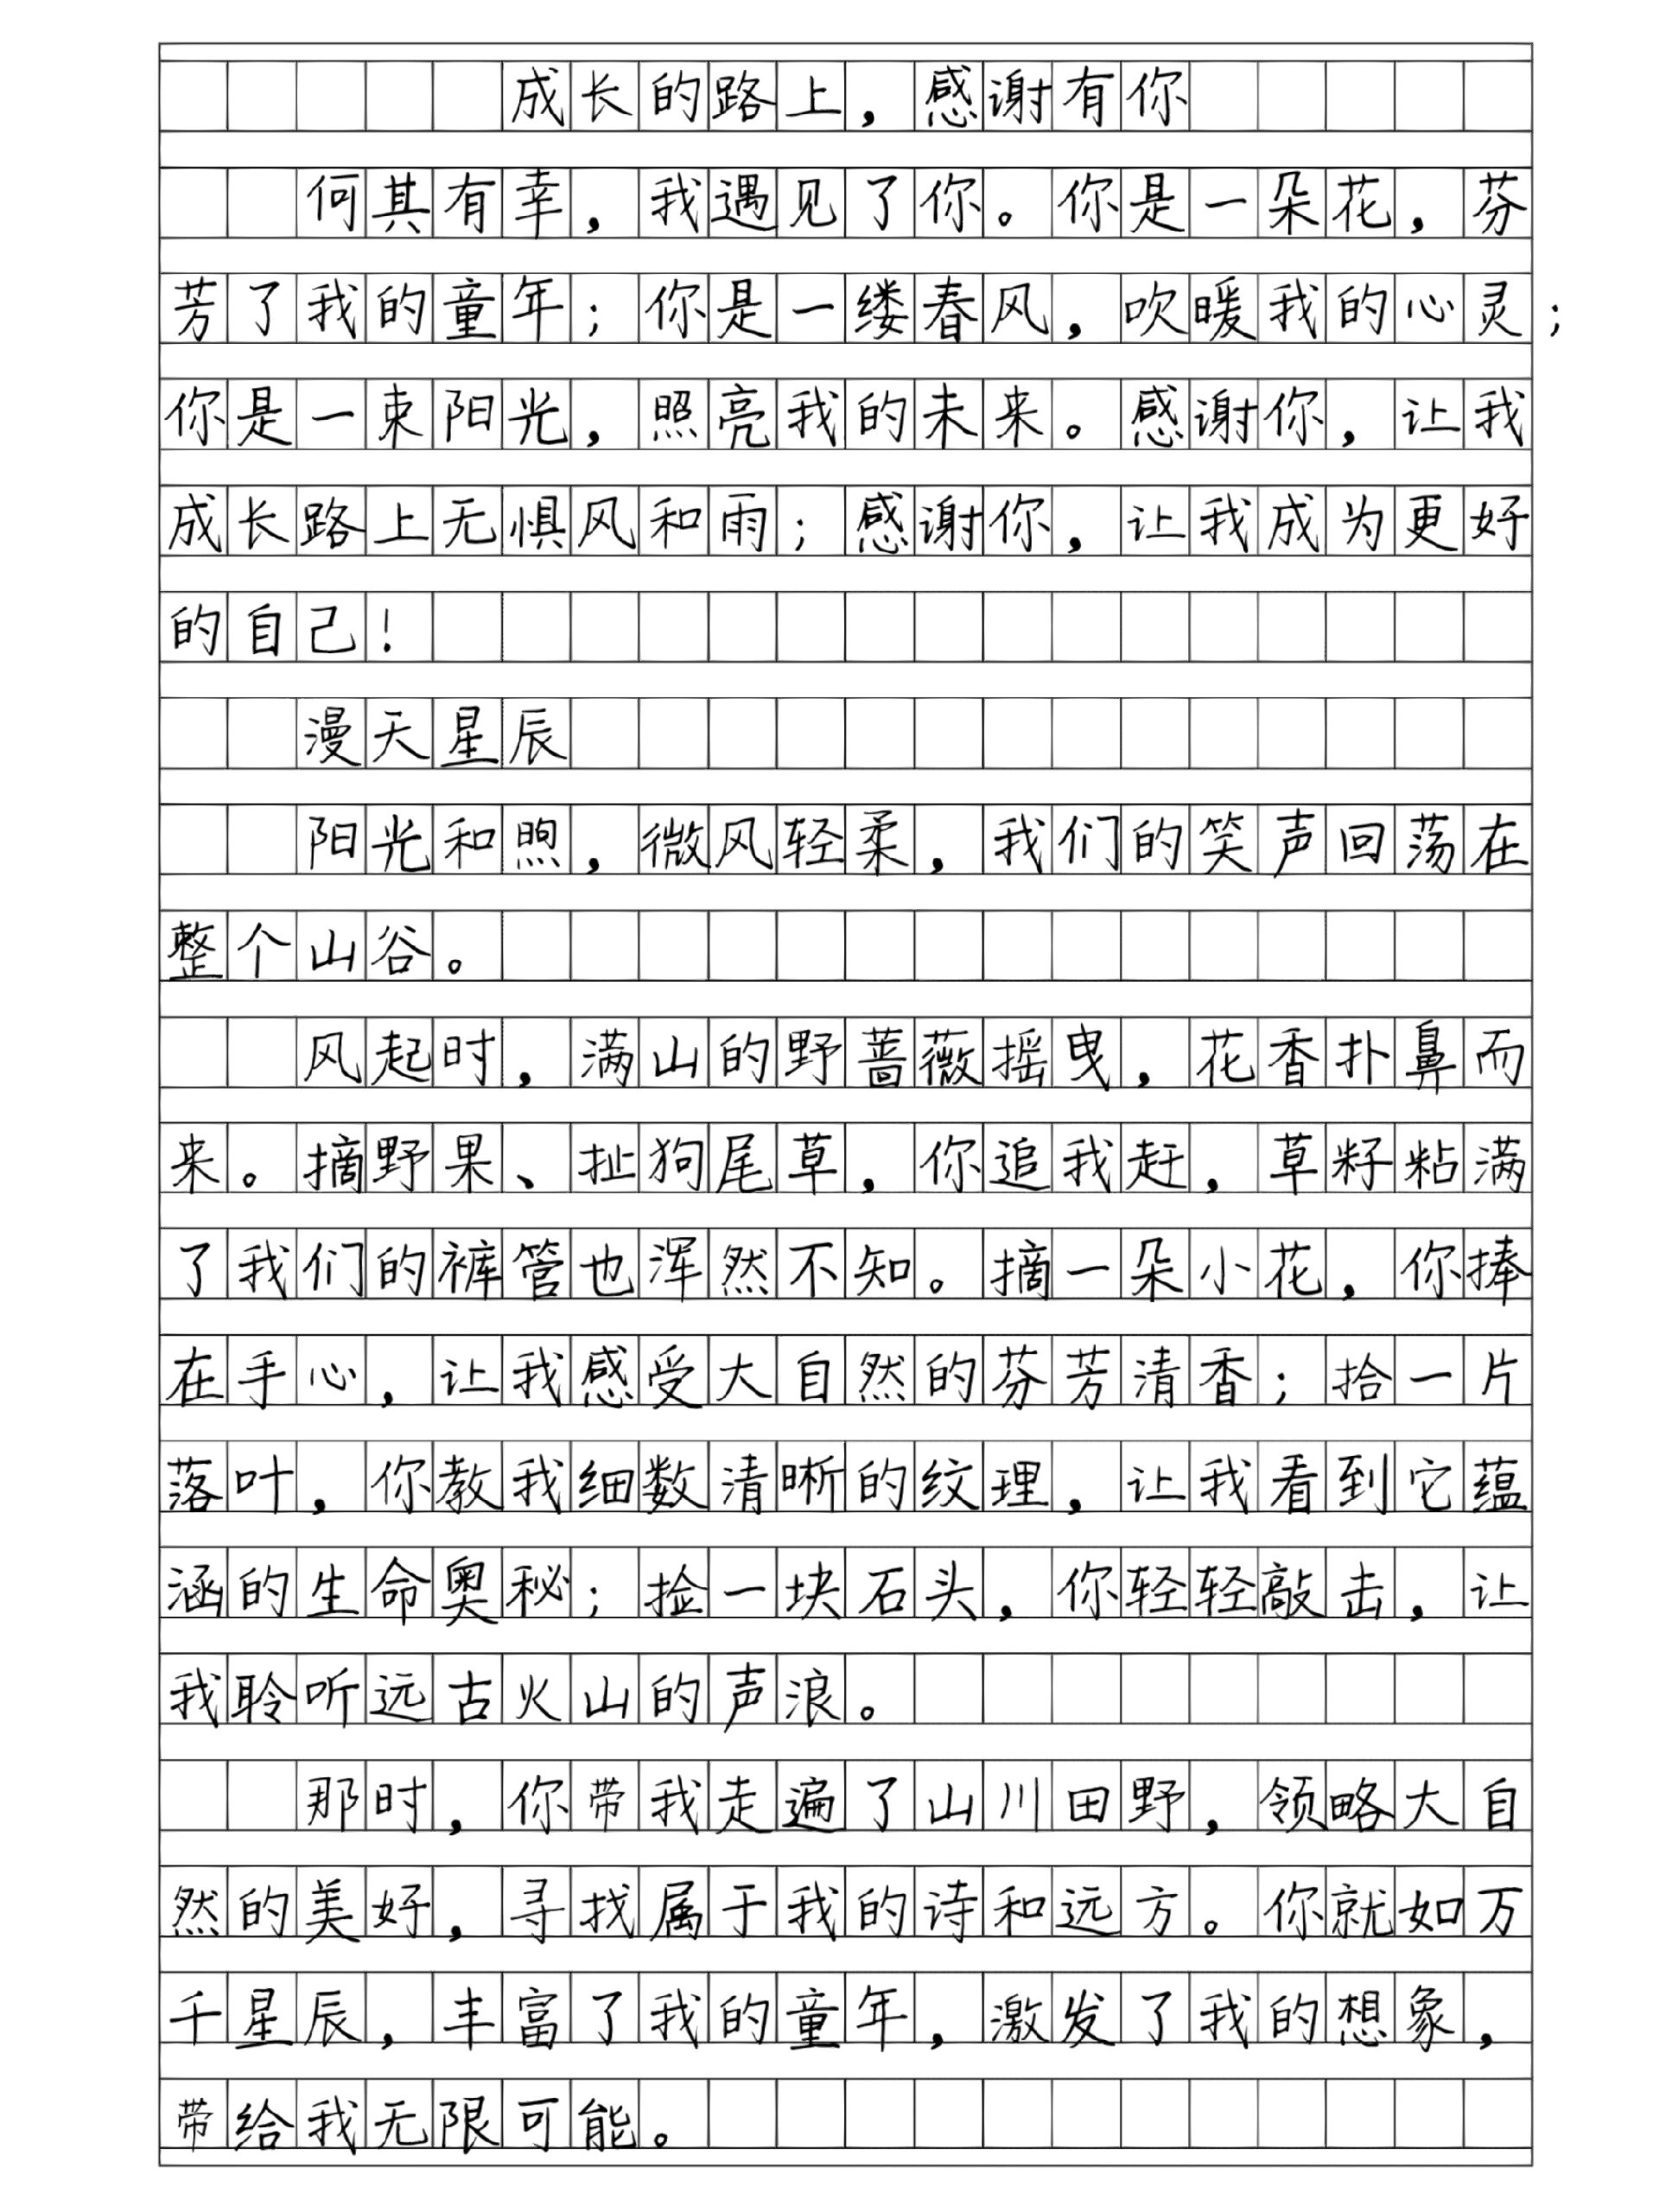 成长的路上，感谢有你
何其有幸，我遇见了你。你是一朵花，芬
芳了我的童年；你是一缕春风，吹暖我的心灵；
你是一束阳光，照亮我的未来。感谢你，让我
成长路上无惧风和雨；感谢你，让我成为更好
的自己！
漫天星辰
阳光和煦，微风轻柔，我们的笑声回荡在
整个山谷。
风起时，满山的野蔷薇摇曳，花香扑鼻而
来。摘野果、扯狗尾草，你追我赶，草籽粘满
了我们的裤管也浑然不知。摘一朵小花，你捧
在手心，让我感受大自然的芬芳清香；拾一片
落叶，你教我细数清晰的纹理，让我看到它蕴
涵的生命奥秘；捡一块石头，你轻轻敲击，让
我聆听远古火山的声浪。
那时，你带我走遍了山川田野，领略大自
然的美好，寻找属于我的诗和远方。你就如万
千星辰，丰富了我的童年，激发了我的想象，
带给我无限可能。